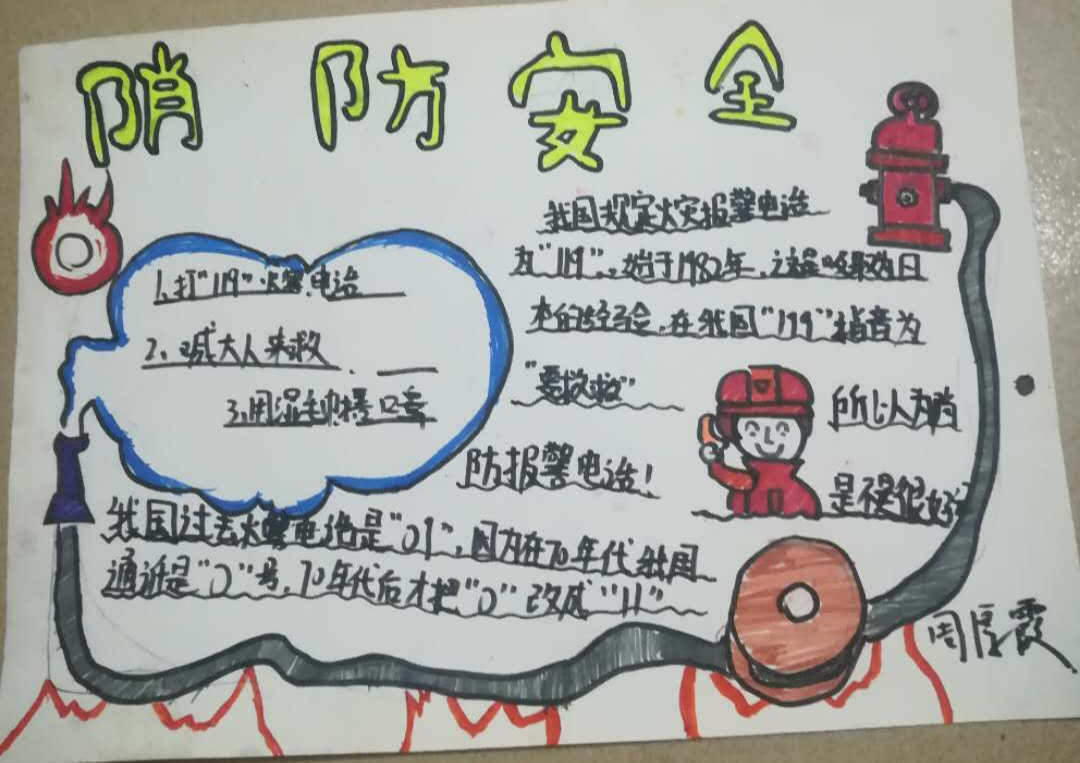 消防安全
1、打"119"火警电话
2、喊大人来救
3、用湿毛巾捂口鼻
我国规定火灾报警电话
为"119"，始于1982年，这是吸取为日
本的经验，在我国"119"谐音为
"要救救"
所以人为消
防报警电话！
是不是很好
我国过去火警电话是"01"，因为在70年代我国
通话是"0"号，70年代后才把"0"改成"11"
周厚霞